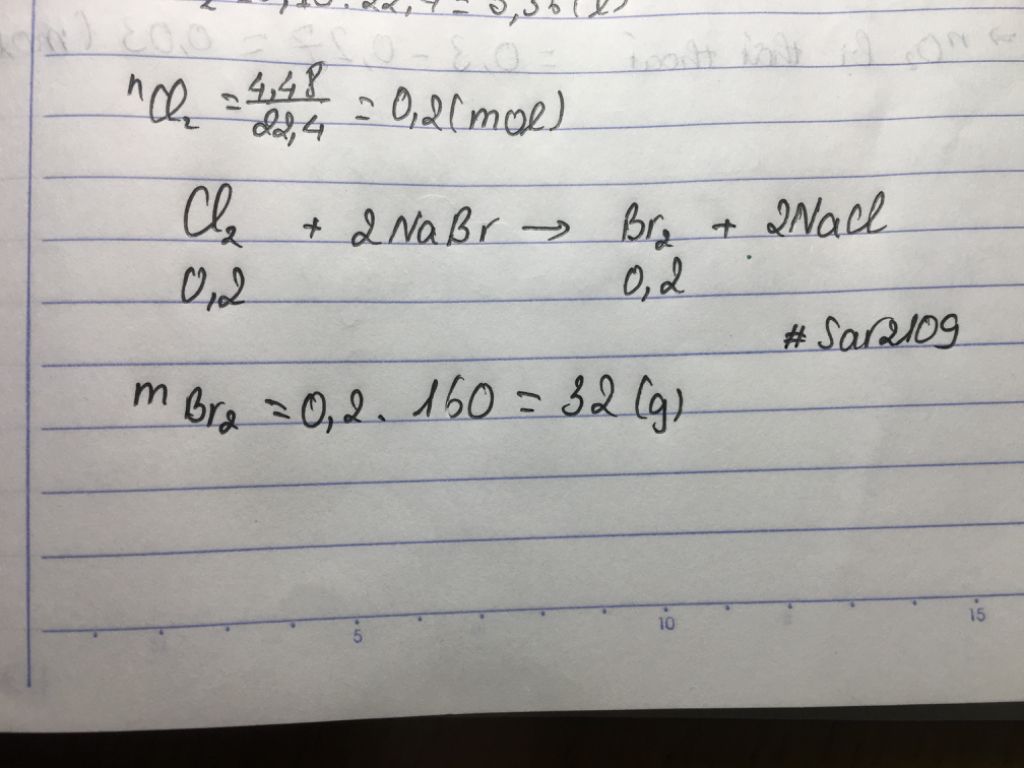 nCl₂ = 4,48/22,4 = 0,2 (mol)
Cl₂ + 2NaBr → Br₂ + 2NaCl
0,2 0,2
# Sar2109
mBr₂ = 0,2 . 160 = 32 (g)
5 10 15